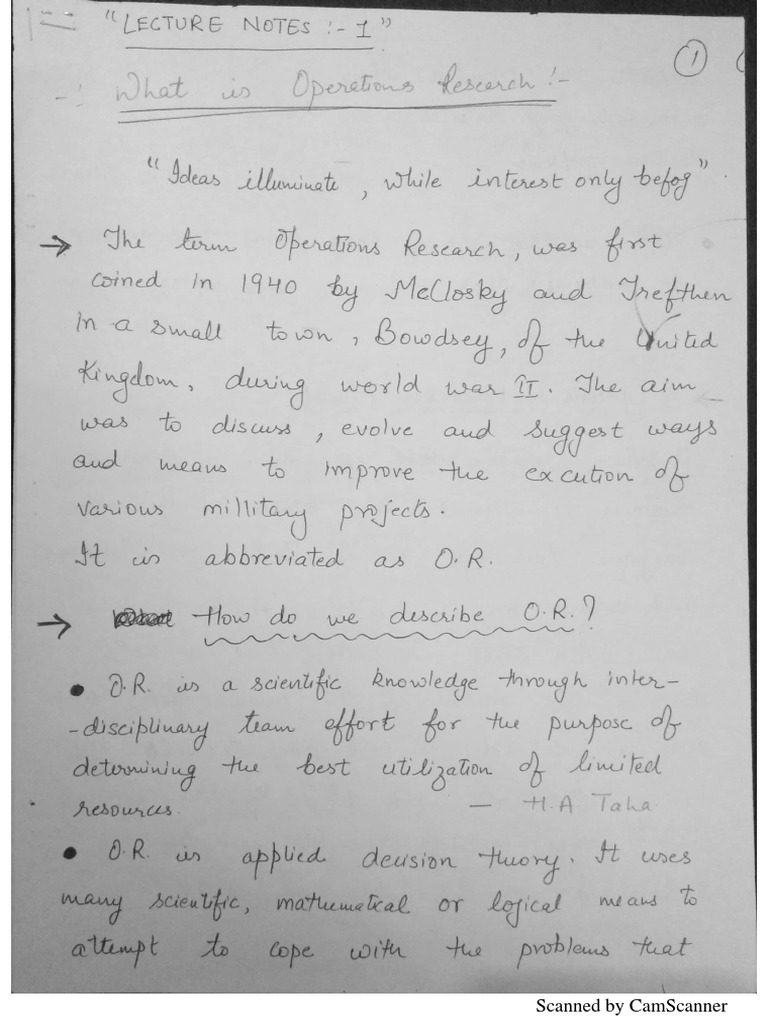 "LECTURE NOTES :- 1"
1
-: What is Operations Research :-
"Ideas illuminate, while interest only befog".
→ The term Operations Research, was first
coined in 1940 by McClosky and Trefthen
in a small town, Bowdsey, of the United
Kingdom, during world war II. The aim
was to discuss, evolve and suggest ways
and means to improve the excution of
various millitary projects.
It is abbreviated as O.R.
→ How do we describe O.R.?
• O.R. is a scientific knowledge through inter-
-disciplinary team effort for the purpose of
determining the best utilization of limited
resources. — H.A Taha
• O.R. is applied decision theory. It uses
many scientific, mathematical or logical means to
attempt to cope with the problems that
Scanned by CamScanner